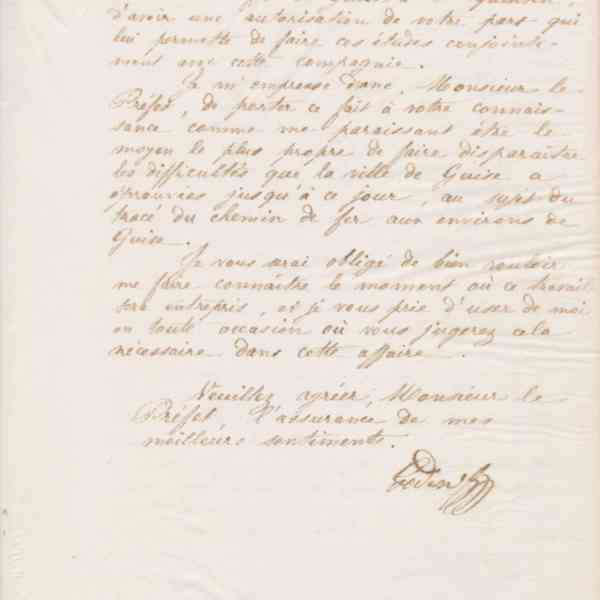 d'avoir une autorisation de votre part qui
lui permette de faire ces études conjointe-
ment avec cette compagnie.
Je m'empresse donc, Monsieur le
Préfet, de porter ce fait à votre connais-
sance comme me paraissant être le
moyen le plus propre de faire disparaître
les difficultés que la ville de Guise a
éprouvées jusqu'à ce jour, au sujet du
tracé du chemin de fer aux environs de
Guise.
Je vous serai obligé de bien vouloir
me faire connaître le moment où ce travail
sera entrepris, et je vous prie d'user de moi
en toute occasion où vous jugerez cela
nécessaire dans cette affaire.
Veuillez agréer, Monsieur le
Préfet l'assurance de mes
meilleurs sentiments.
Godin